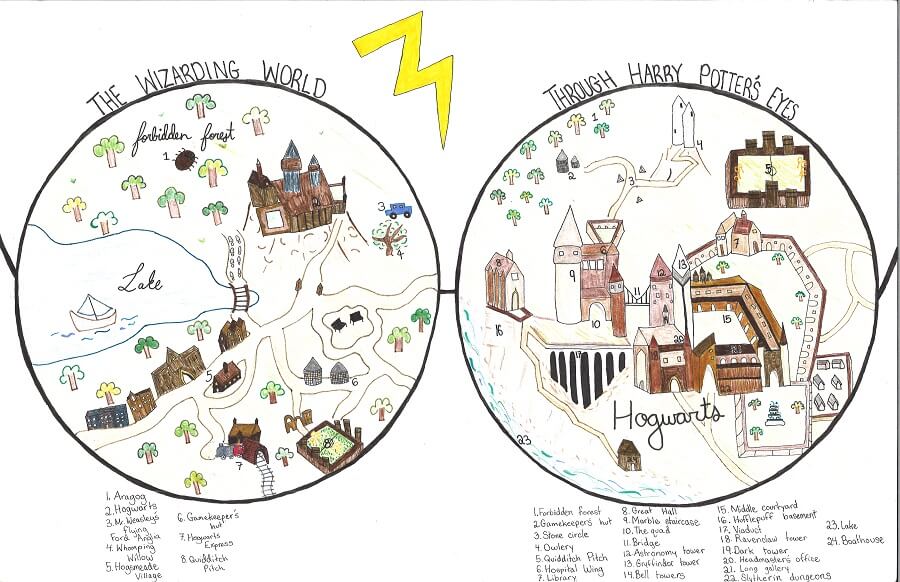 THE WIZARDING WORLD
THROUGH HARRY POTTER'S EYES
forbidden forest
1.
3
4
Lake
5
6
7
1
2
3
4
5
6
7
8
9
10
11
12
13
15
16
17
18
20
23
24
Hogwarts
1. Aragog
2. Hogwarts
3. Mr. Weasley's
flying
Ford Anglia
4. Whomping
Willow
5. Hogsmeade
Village
6. Gamekeeper's
hut
7. Hogwarts
Express
8. Quidditch
Pitch
1. Forbidden forest
2. Gamekeepers hut
3. Stone circle
4. Owlery
5. Quidditch Pitch
6. Hospital Wing
7. Library
8. Great Hall
9. Marble staircase
10. The quad
11. Bridge
12. Astronomy tower
13. Gryffindor tower
14. Bell towers
15. Middle courtyard
16. Hufflepuff basement
17. Viaduct
18. Ravenclaw tower
19. Dark tower
20. Headmasters office
21. Long gallery
22. Slytherin dungeons
23. Lake
24. Boathouse